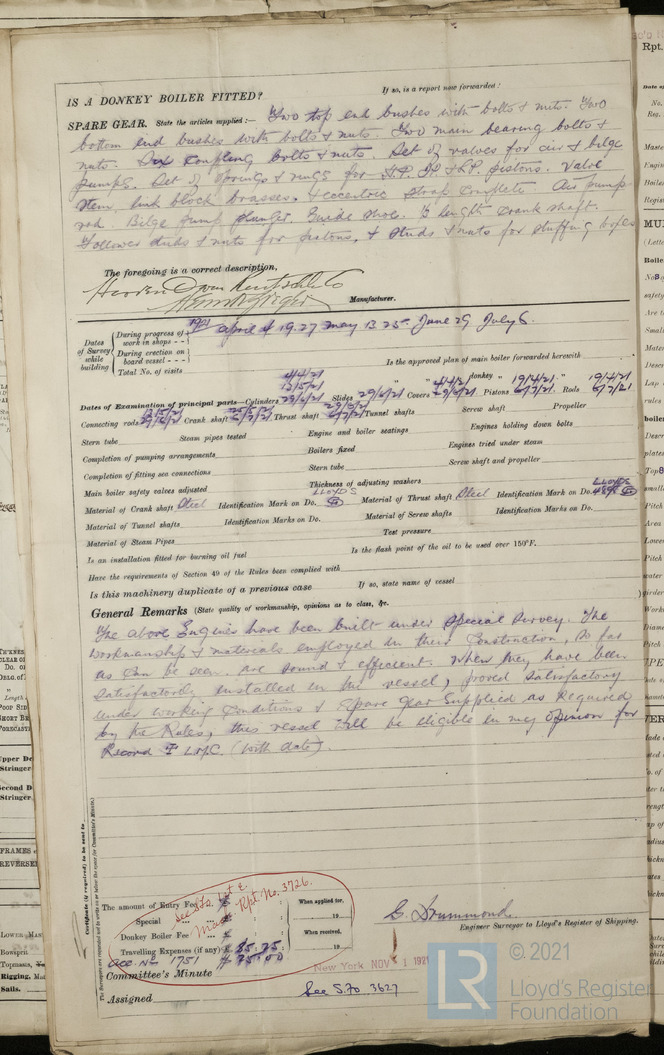 IS A DONKEY BOILER FITTED?
If so, is a report now forwarded?
SPARE GEAR. State the articles supplied:— Two top end bushes with bolts & nuts. Two
bottom end bushes with bolts & nuts. Two main bearing bolts &
nuts. Six coupling bolts & nuts. Set of valves for air & bilge
pumps. Set of springs & rings for H.P. IP & L.P. pistons. Valve
stem, link block brasses, & eccentric strap complete. Air pump
rod. Bilge pump plunger. Guide shoe. ⅓ length crank shaft.
Follower studs & nuts for pistons, & studs & nuts for stuffing boxes
The foregoing is a correct description,
Hooven Owen Rentschler Co
Manufacturer.
Dates of Survey while building
During progress of work in shops - -
1921 April 4 19. 27 May 13 25. June 29 July 6.
During erection on board vessel - - -
Total No. of visits
Is the approved plan of main boiler forwarded herewith
" " " donkey " " "
Dates of Examination of principal parts—Cylinders 4/4/21 13/5/21 29/6/21 Slides 29/6/21 Covers 4/4/21 29/6/21 Pistons 19/4/21 6/7/21 Rods 19/4/21 6/7/21
Connecting rods 13/5/21 29/6/21 Crank shaft 25/5/21 6/7/21 Thrust shaft 29/6/21 6/7/21 Tunnel shafts Screw shaft Propeller
Stern tube Steam pipes tested Engine and boiler seatings Engines holding down bolts
Completion of pumping arrangements Boilers fixed Engines tried under steam
Completion of fitting sea connections Stern tube Screw shaft and propeller
Main boiler safety valves adjusted Thickness of adjusting washers
Material of Crank shaft Steel Identification Mark on Do. LLOYD'S Material of Thrust shaft Steel Identification Mark on Do. LLOYDS
Material of Tunnel shafts Identification Marks on Do. Material of Screw shafts Identification Marks on Do.
Material of Steam Pipes Test pressure
Is an installation fitted for burning oil fuel Is the flash point of the oil to be used over 150°F.
Have the requirements of Section 49 of the Rules been complied with
Is this machinery duplicate of a previous case If so, state name of vessel
General Remarks (State quality of workmanship, opinions as to class, &c.
The above Engines have been built under Special Survey. The
workmanship & materials employed in their construction, so far
as can be seen are sound & efficient. When they have been
satisfactorily installed in the vessel, proved satisfactory
under working conditions & spare gear supplied as required
by the Rules, this vessel will be eligible in my opinion for
Record + LMC. (with date).
Certificate (if required) to be sent to
The Surveyors are requested not to write on or below the space for Committee's Minute.
The amount of Entry Fee
Special
Donkey Boiler Fee
Travelling Expenses (if any) $ 85.75
Acc. No 1751 $ 75.00
Rpt. No. 3726.
When applied for,
19
When received,
19
C. Drummond
Engineer Surveyor to Lloyd's Register of Shipping.
Committee's Minute
New York NOV 1 1921
Assigned
See S.Fo. 3627
© 2021
Lloyd's Register
Foundation
LR